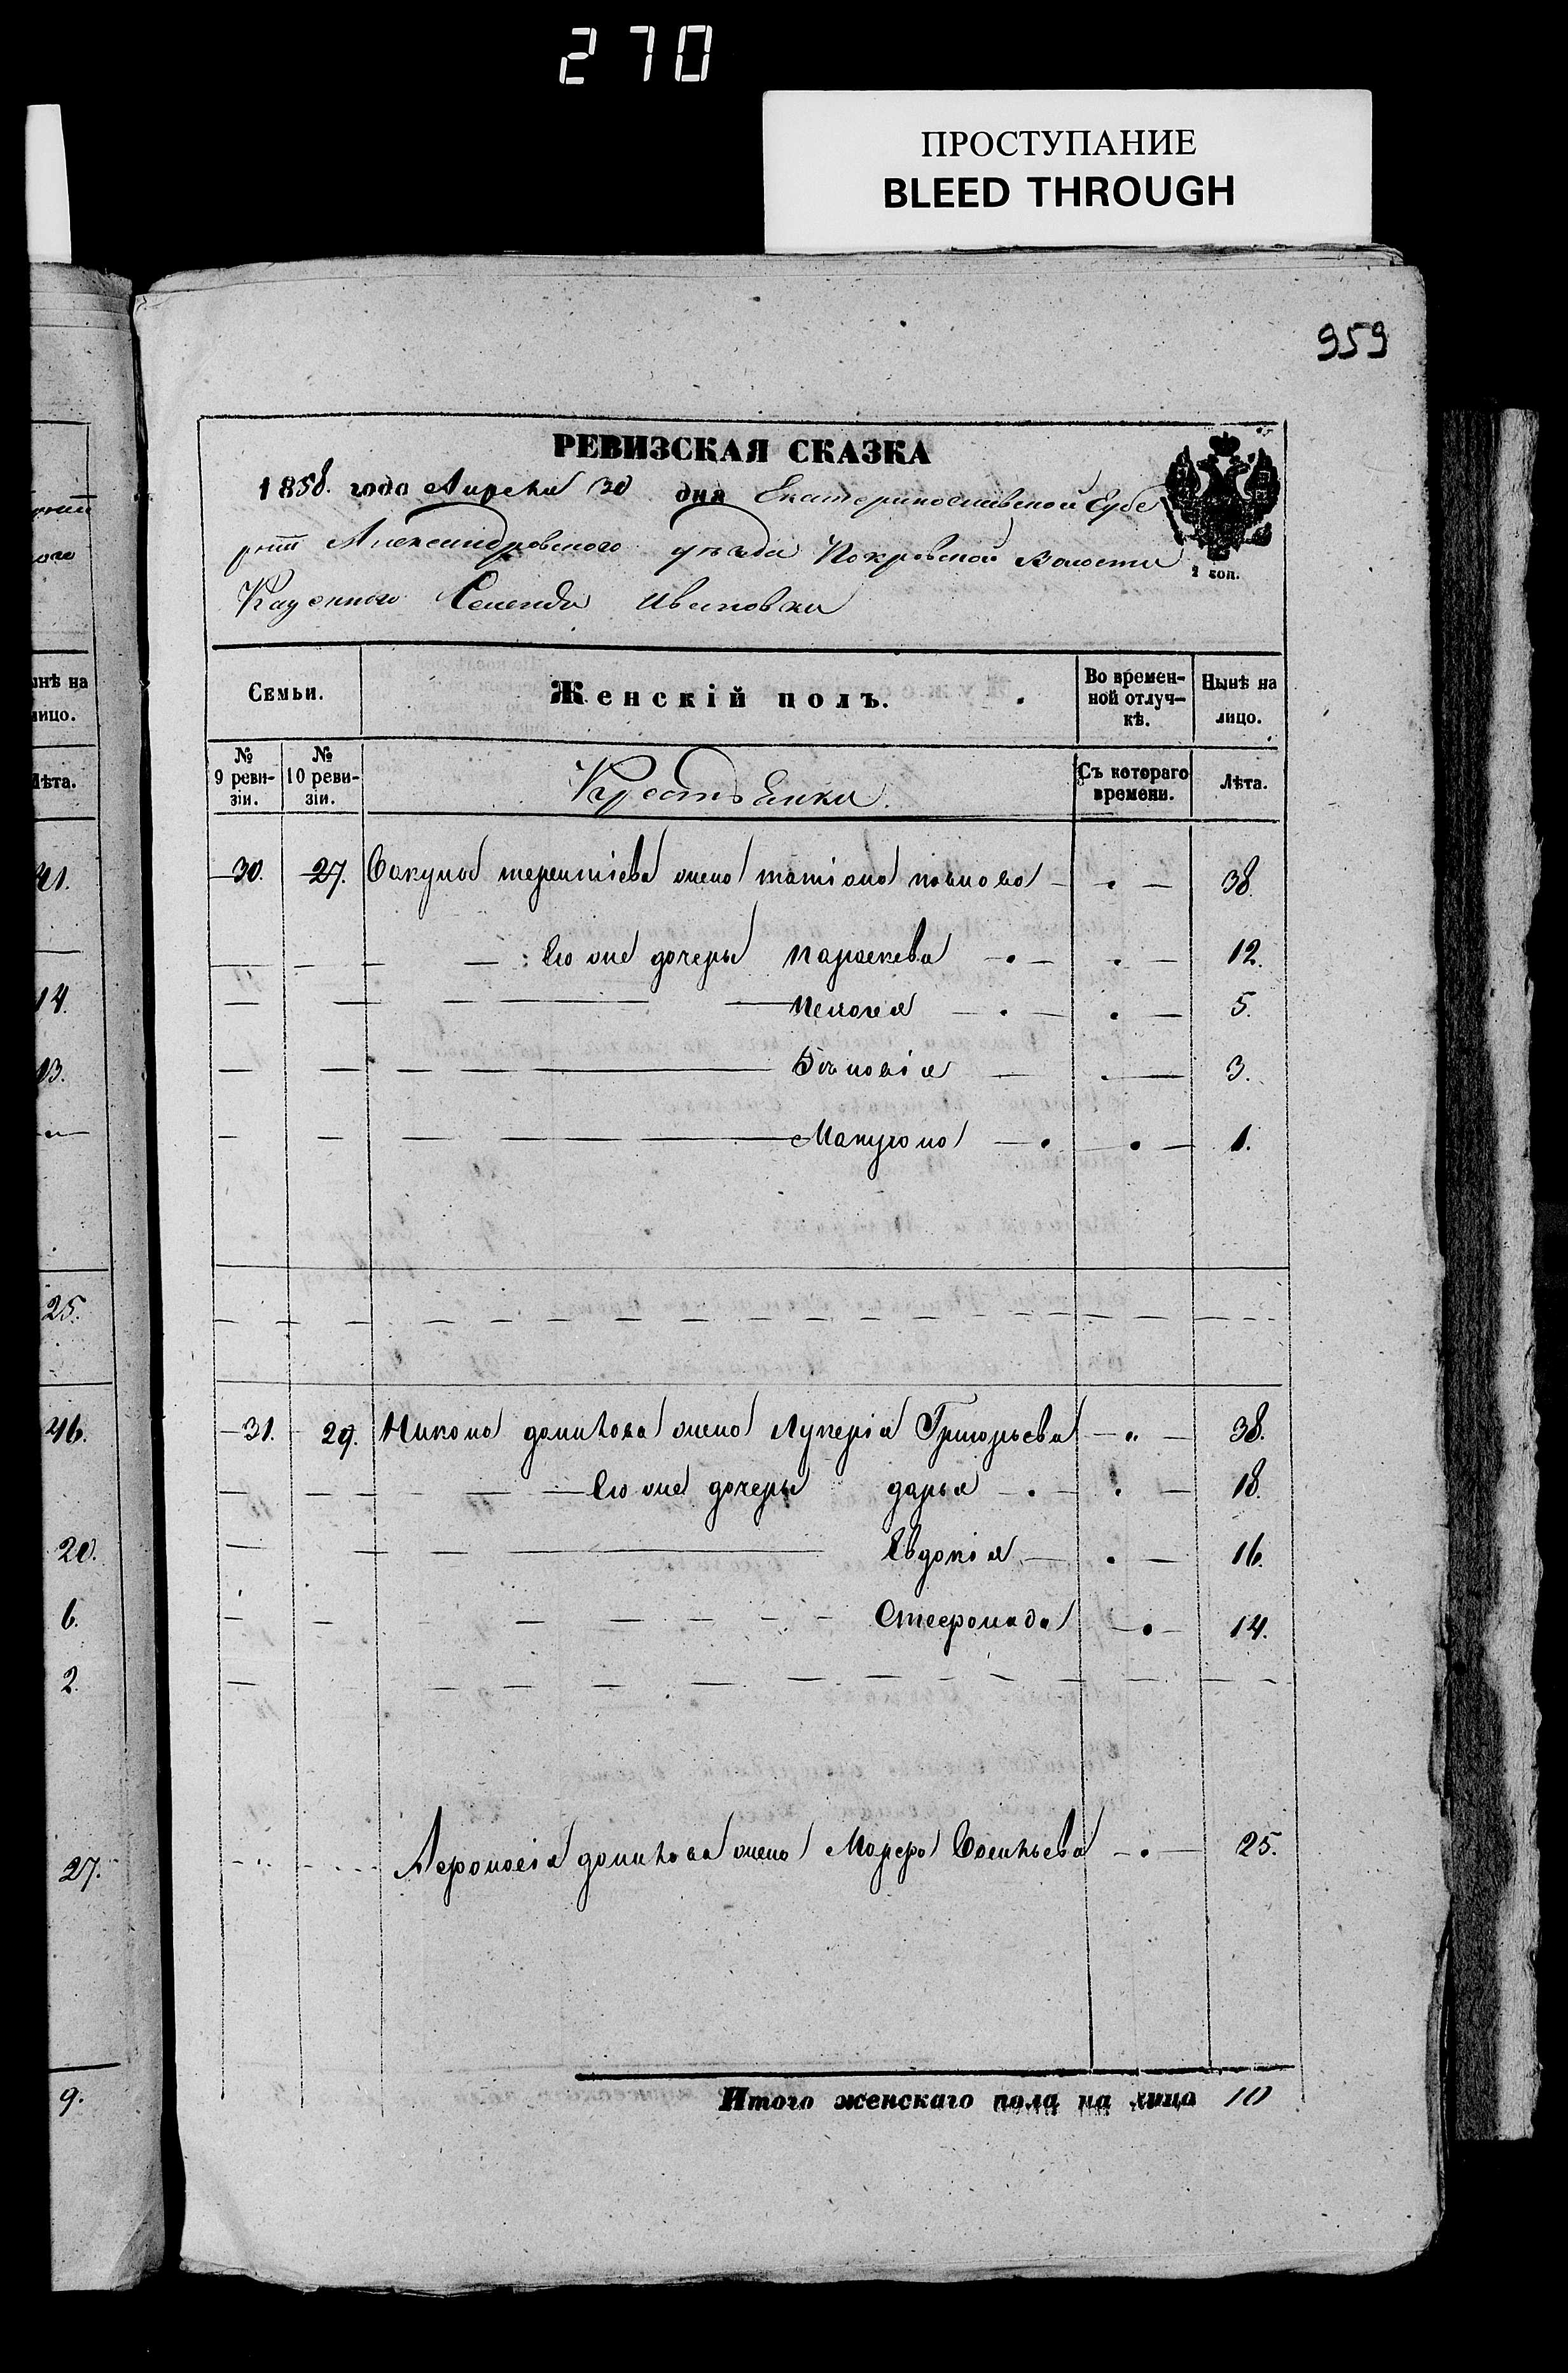 270
ПРОСТУПАНИЕ
BLEED THROUGH
959
РЕВИЗСКАЯ СКАЗКА
1858. года Апреля 30 дня Екатеринославской Губе
рнии Александровского уезда Покровской Волости
2 коп.
Казенного Селенда Ивановки
Семьи. Женскій полъ. Во времен-
ной отлуч-
кѣ. Нынѣ на
лицо.
№
9 реви-
зіи. №
10 реви-
зіи. Крестьенки. Съ котораго
времени. Лѣта.
30. 27. терентіева жена татіана 38.
Его же дочеры параскева 12.
Пелогея 5.
3.
1.
31. 29. Никона данилова жена Лукерія Григорьева 38.
Его же дочеры дарья 18.
Евдокія 16.
Стефонида 14.
Афонасія данилова жена Марфа 25.
Итого женскаго пола на лицо 10
нѣ на
лицо.
Лѣта.
41.
14.
13.
25.
46.
20.
6.
2.
27.
9.